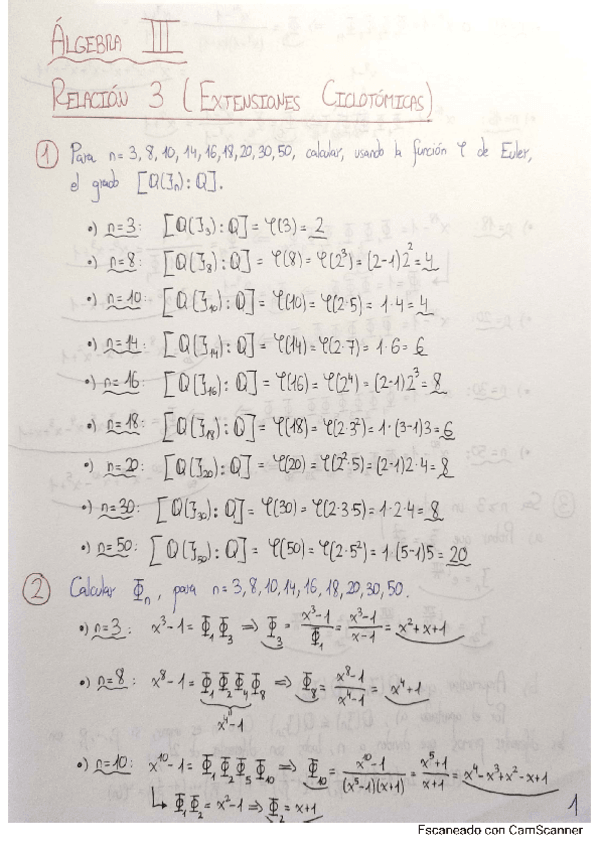 ÁLGEBRA III
RELACIÓN 3 (EXTENSIONES CICLOTÓMICAS)
① Para n = 3, 8, 10, 14, 16, 18, 20, 30, 50, calcular, usando la función φ de Euler,
el grado [ℚ(ζₙ):ℚ].
•) n=3: [ℚ(ζ₃):ℚ] = φ(3) = 2
•) n=8: [ℚ(ζ₈):ℚ] = φ(8) = φ(2³) = (2-1)2² = 4
•) n=10: [ℚ(ζ₁₀):ℚ] = φ(10) = φ(2·5) = 1·4 = 4
•) n=14: [ℚ(ζ₁₄):ℚ] = φ(14) = φ(2·7) = 1·6 = 6
•) n=16: [ℚ(ζ₁₆):ℚ] = φ(16) = φ(2⁴) = (2-1)2³ = 8
•) n=18: [ℚ(ζ₁₈):ℚ] = φ(18) = φ(2·3²) = 1·(3-1)3 = 6
•) n=20: [ℚ(ζ₂₀):ℚ] = φ(20) = φ(2²·5) = (2-1)2·4 = 8
•) n=30: [ℚ(ζ₃₀):ℚ] = φ(30) = φ(2·3·5) = 1·2·4 = 8
•) n=50: [ℚ(ζ₅₀):ℚ] = φ(50) = φ(2·5²) = 1·(5-1)5 = 20
② Calcular Φₙ, para n = 3, 8, 10, 14, 16, 18, 20, 30, 50.
•) n=3: x³-1 = Φ₁Φ₃ ⇒ Φ₃ = (x³-1)/Φ₁ = (x³-1)/(x-1) = x²+x+1
•) n=8: x⁸-1 = Φ₁Φ₂Φ₄Φ₈ ⇒ Φ₈ = (x⁸-1)/(x⁴-1) = x⁴+1
x⁴-1
•) n=10: x¹⁰-1 = Φ₁Φ₂Φ₅Φ₁₀ ⇒ Φ₁₀ = (x¹⁰-1)/((x⁵-1)(x+1)) = (x⁵+1)/(x+1) = x⁴-x³+x²-x+1
↳ Φ₁Φ₂ = x²-1 ⇒ Φ₂ = x+1
1
Escaneado con CamScanner